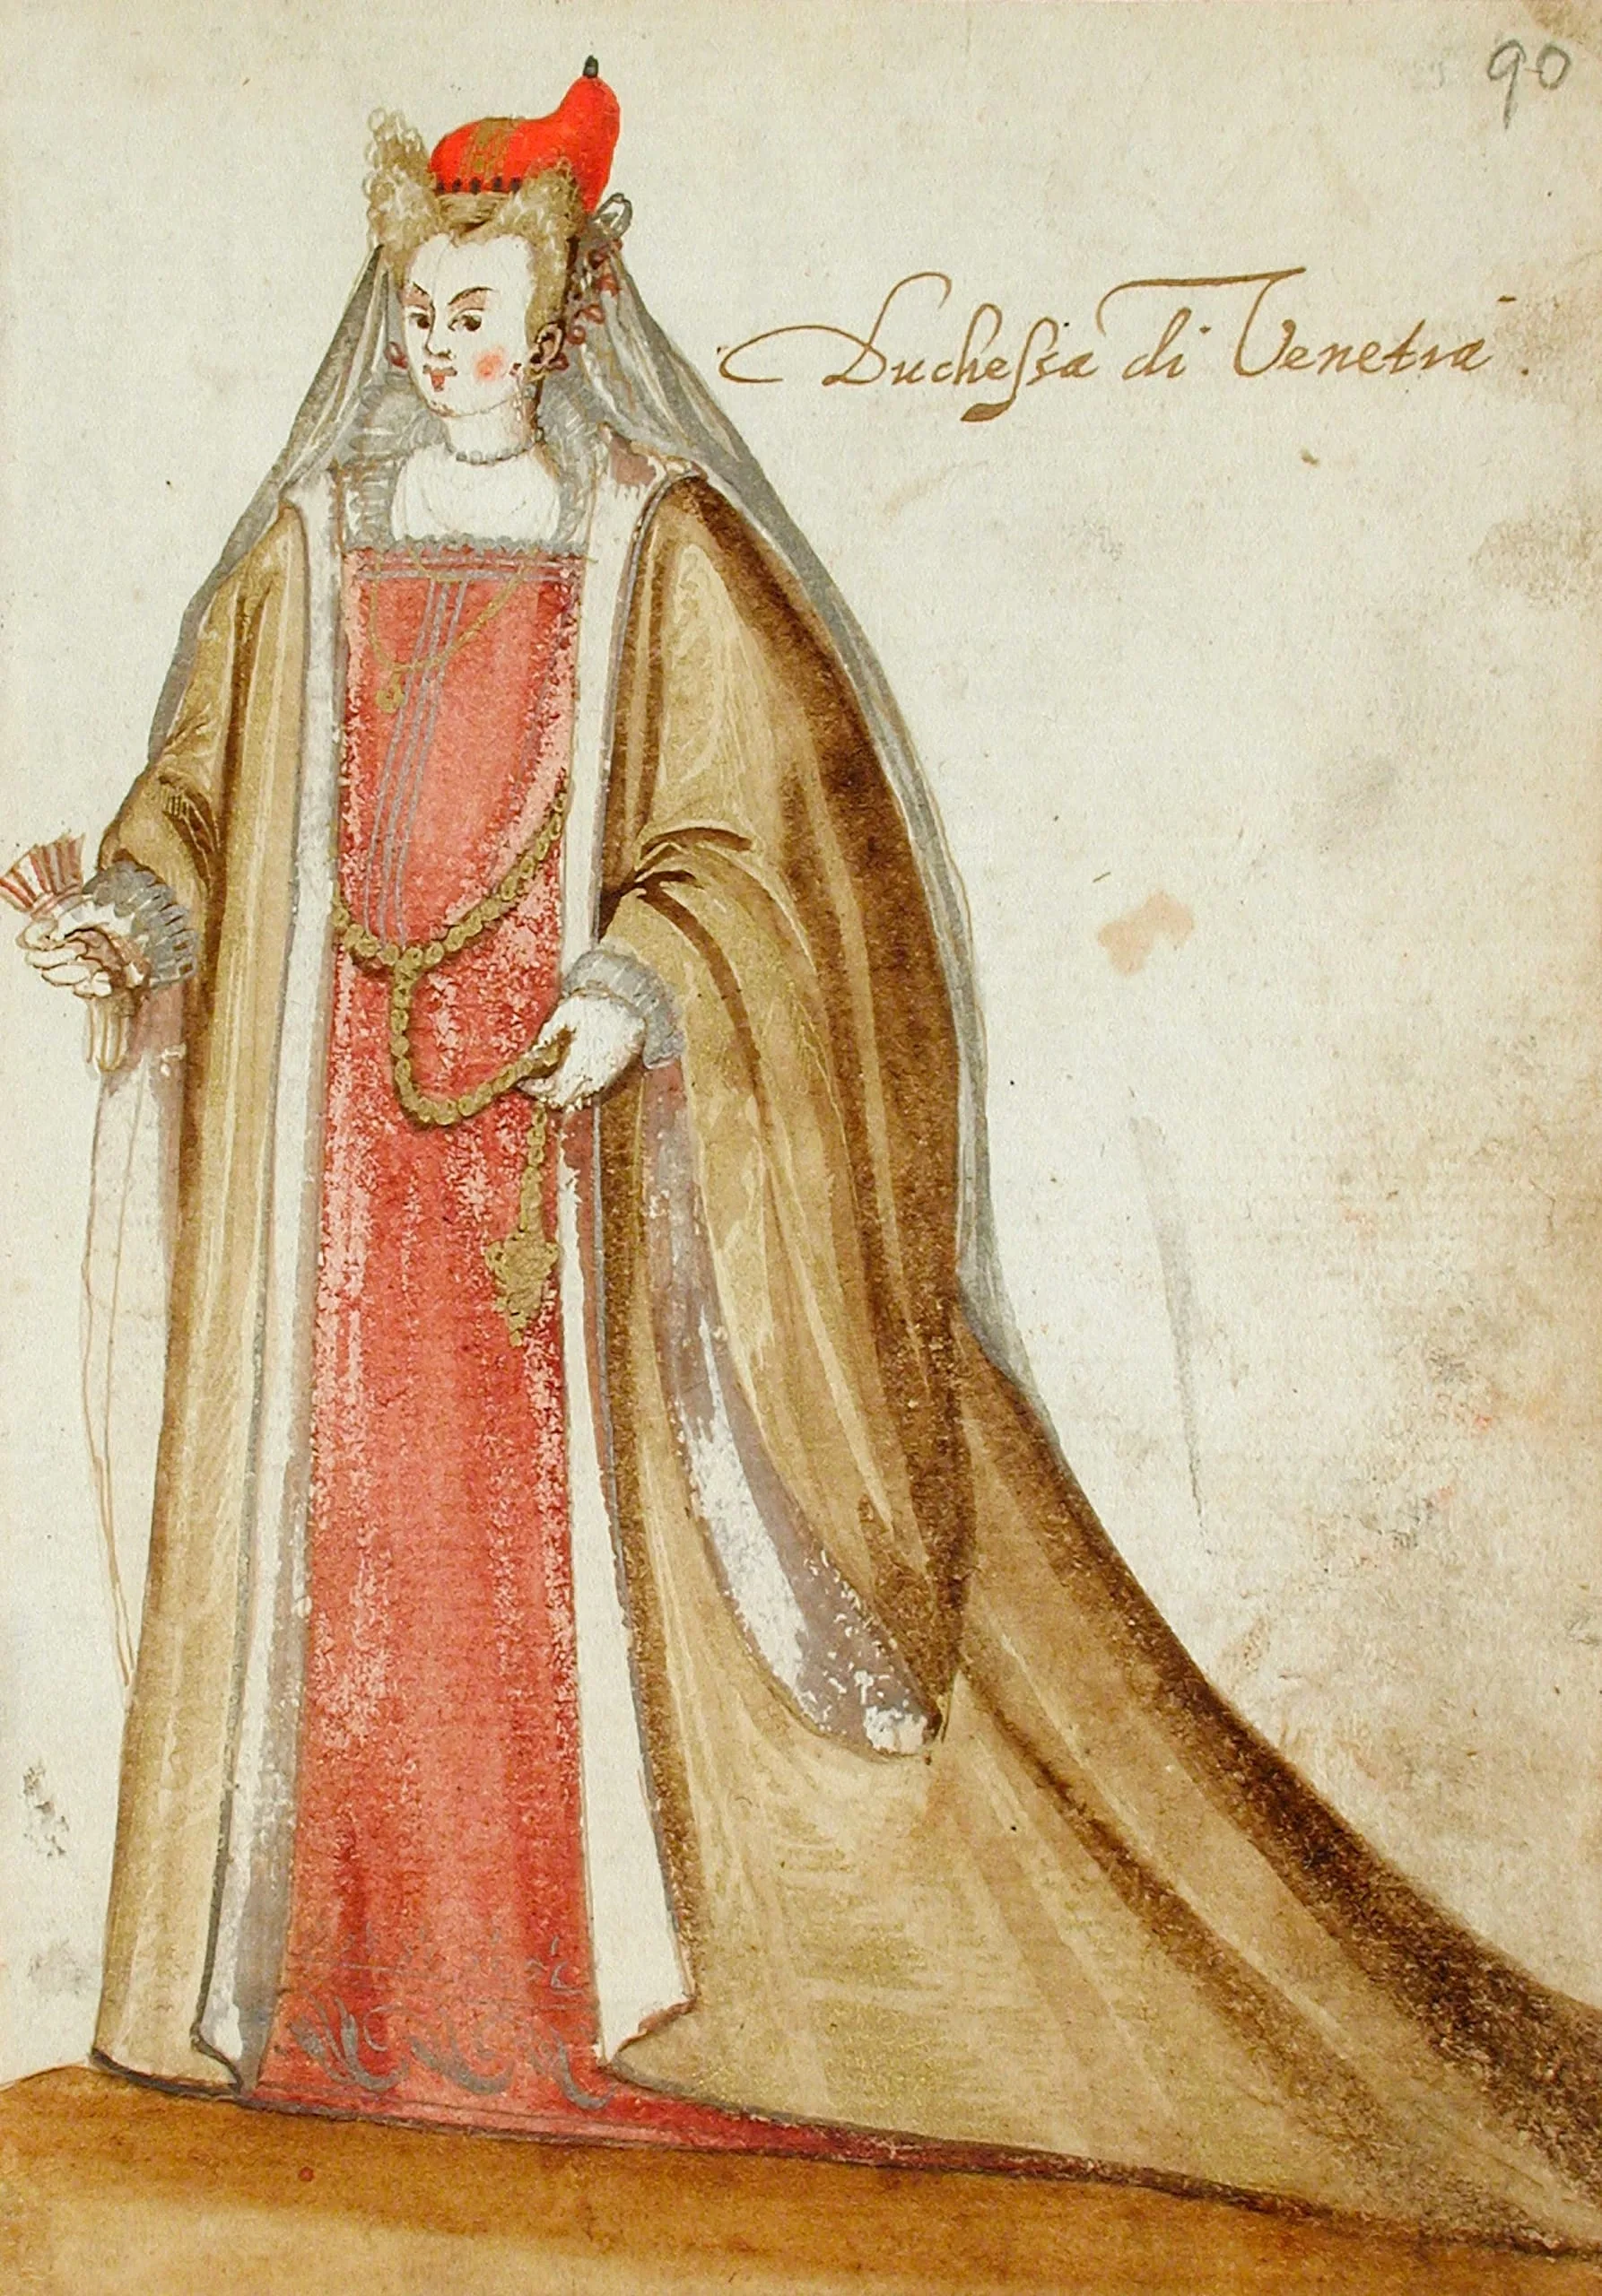 90
Duchessa di Venetia.